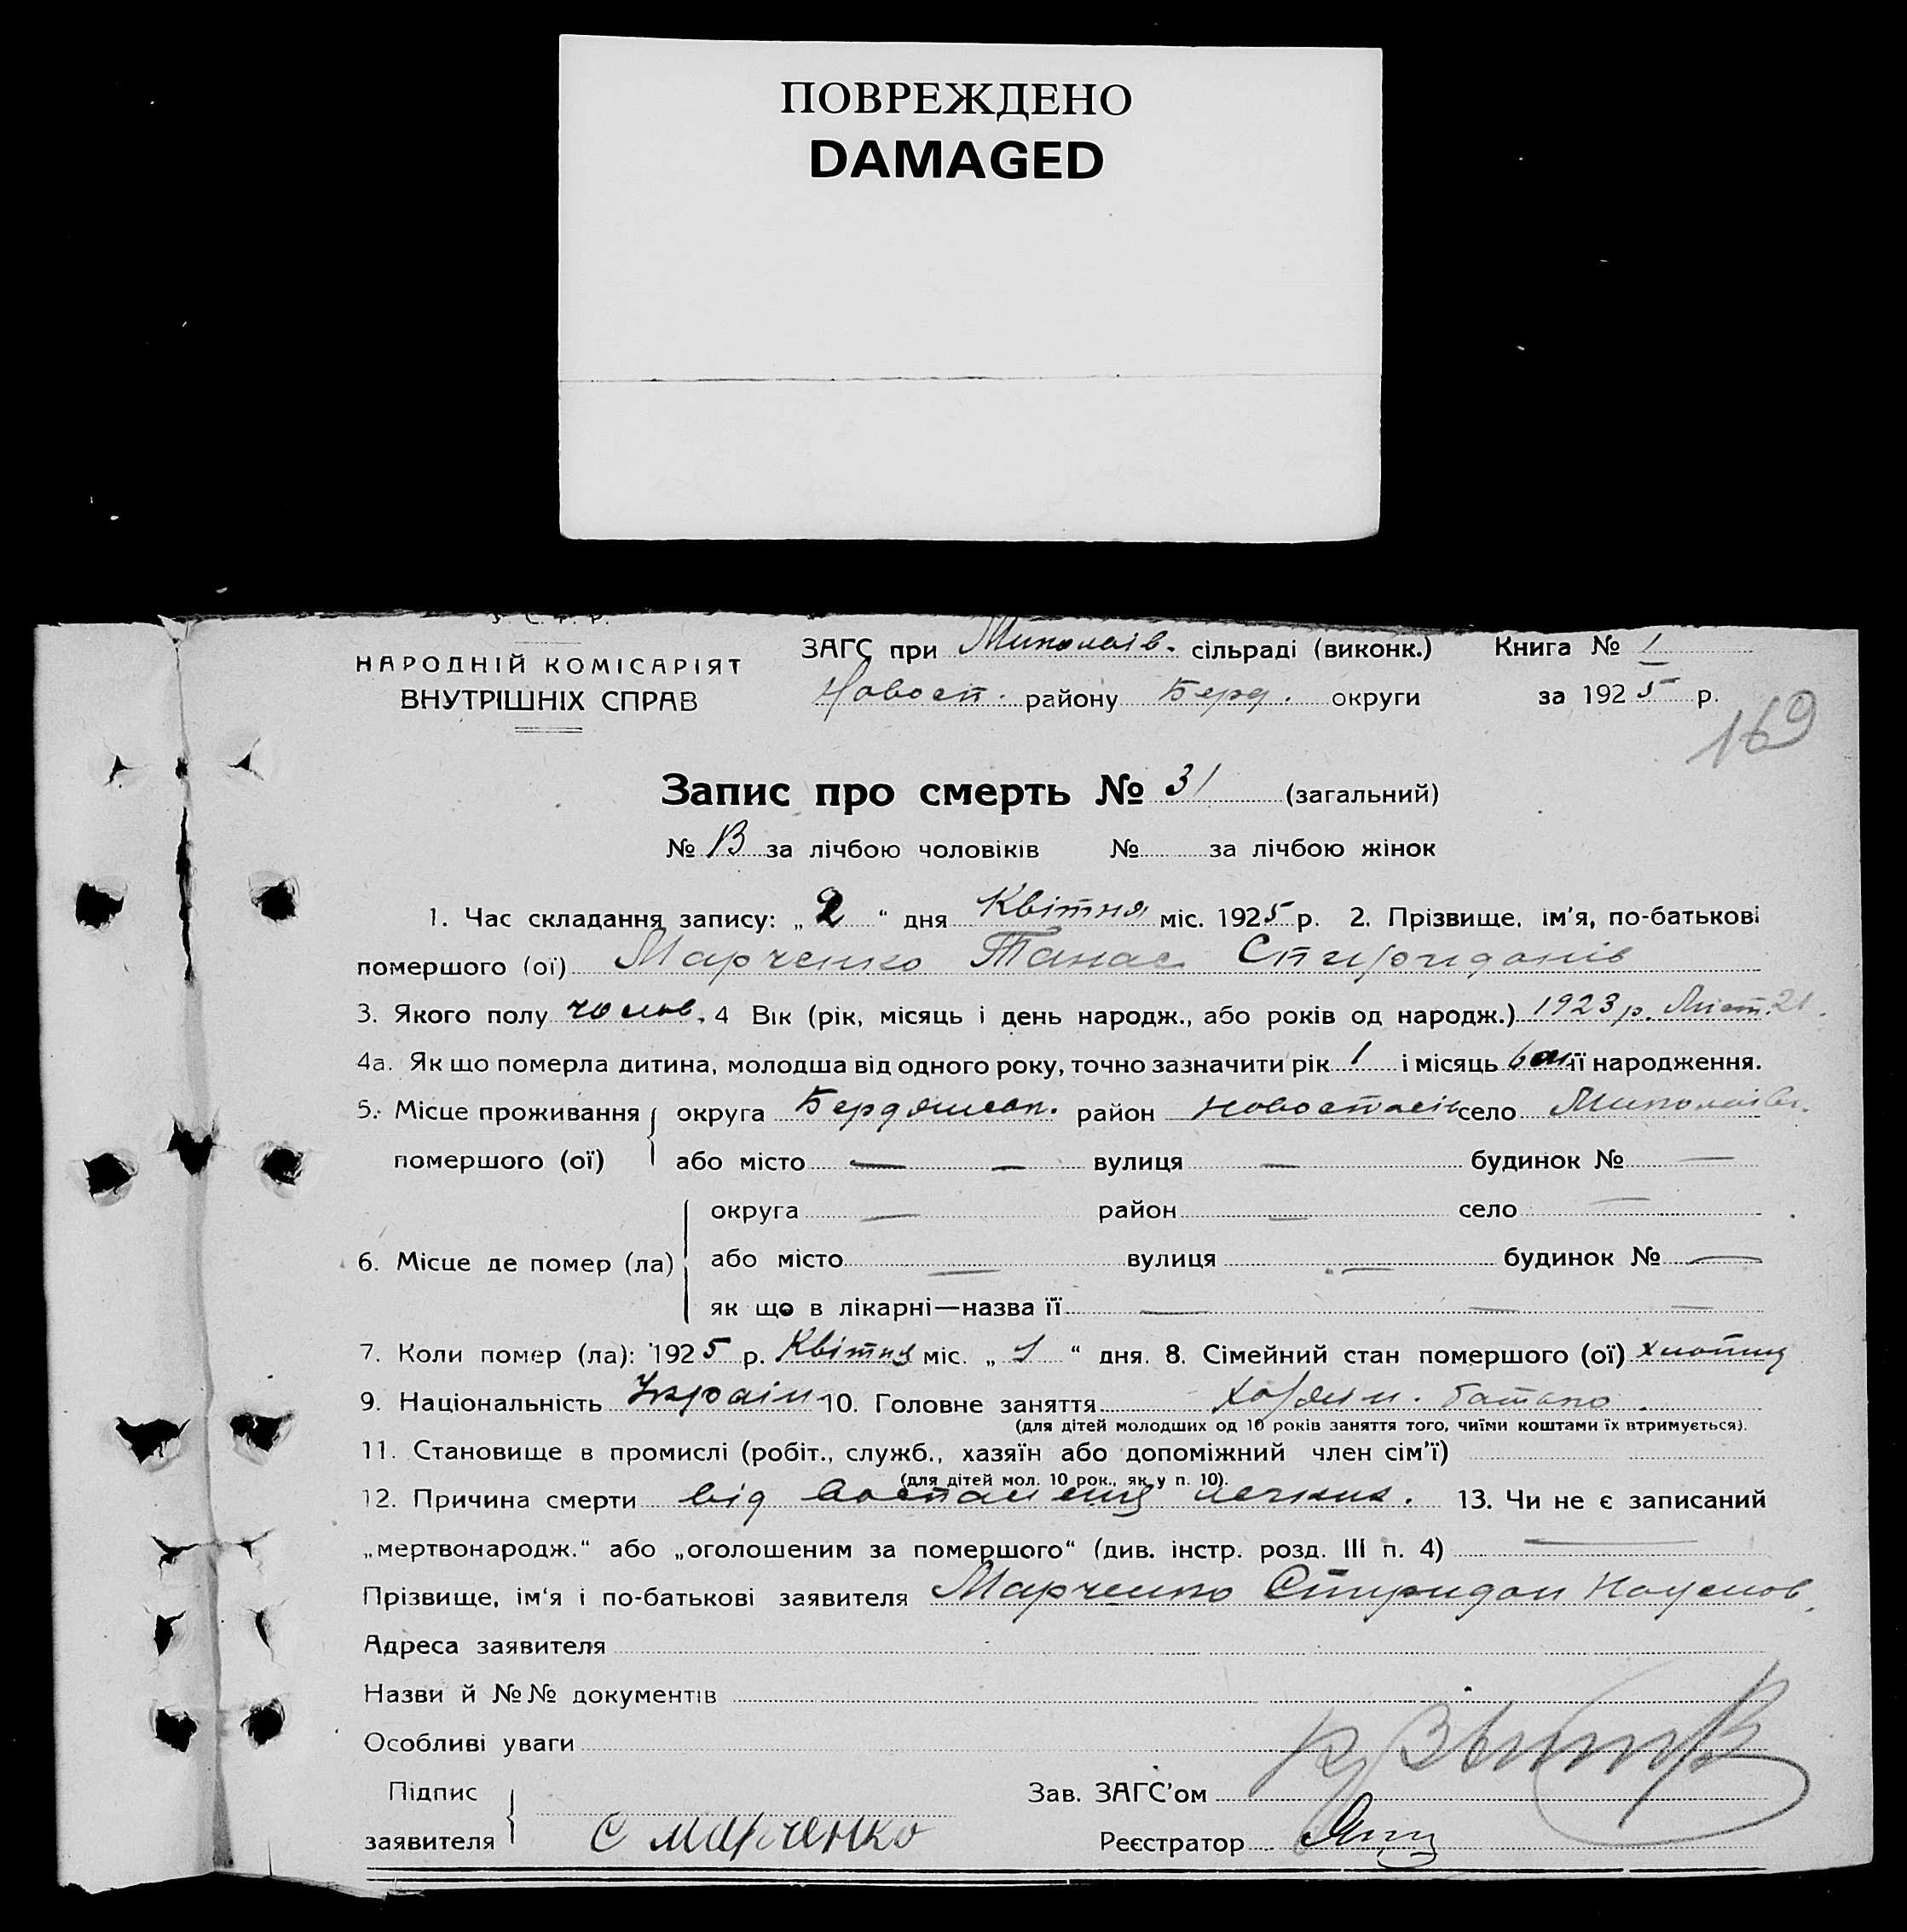 ПОВРЕЖДЕНО
DAMAGED
У. С. Р. Р.
НАРОДНІЙ КОМІСАРІЯТ
ВНУТРІШНІХ СПРАВ
ЗАГС при Миколаїв. сільраді (виконк.) Книга № 1
Новосп. району Берд. округи за 1925 р.
169
Запис про смерть № 31 (загальний)
№ 13 за лічбою чоловіків № за лічбою жінок
1. Час складання запису: „2“ дня Квітня міс. 1925 р. 2. Прізвище, ім’я, по-батькові
помершого (ої) Марченко Танас Спиридонів
3. Якого полу чолов. 4 Вік (рік, місяць і день народж., або років од народж.) 1923 р. Лист. 21.
4а. Як що померла дитина, молодша від одного року, точно зазначити рік 1 і місяць її народження.
5. Місце проживання округа Бердянськ. район Новоспасів село Миколаївк.
помершого (ої) або місто — — вулиця — будинок № —
округа — район — село —
6. Місце де помер (ла) або місто — вулиця — будинок № —
як що в лікарні—назва її — — —
7. Коли помер (ла): 1925 р. Квітня міс. „1“ дня. 8. Сімейний стан помершого (ої) хлопиць
9. Національність Україн. 10. Головне заняття батько
(для дітей молодших од 10 років заняття того, чиїми коштами їх втримується).
11. Становище в промислі (робіт., служб., хазяїн або допоміжний член сім’ї)
(для дітей мол. 10 рок., як у п. 10).
12. Причина смерти від воспаления легких. 13. Чи не є записаний
„мертвонародж.“ або „оголошеним за помершого“ (див. інстр. розд. III п. 4) —
Прізвище, ім‘я і по-батькові заявителя Марченко Спиридон Наумов.
Адреса заявителя
Назви й №№ документів
Особливі уваги
Підпис
заявителя С Марченко
Зав. ЗАГС’ом
Реєстратор